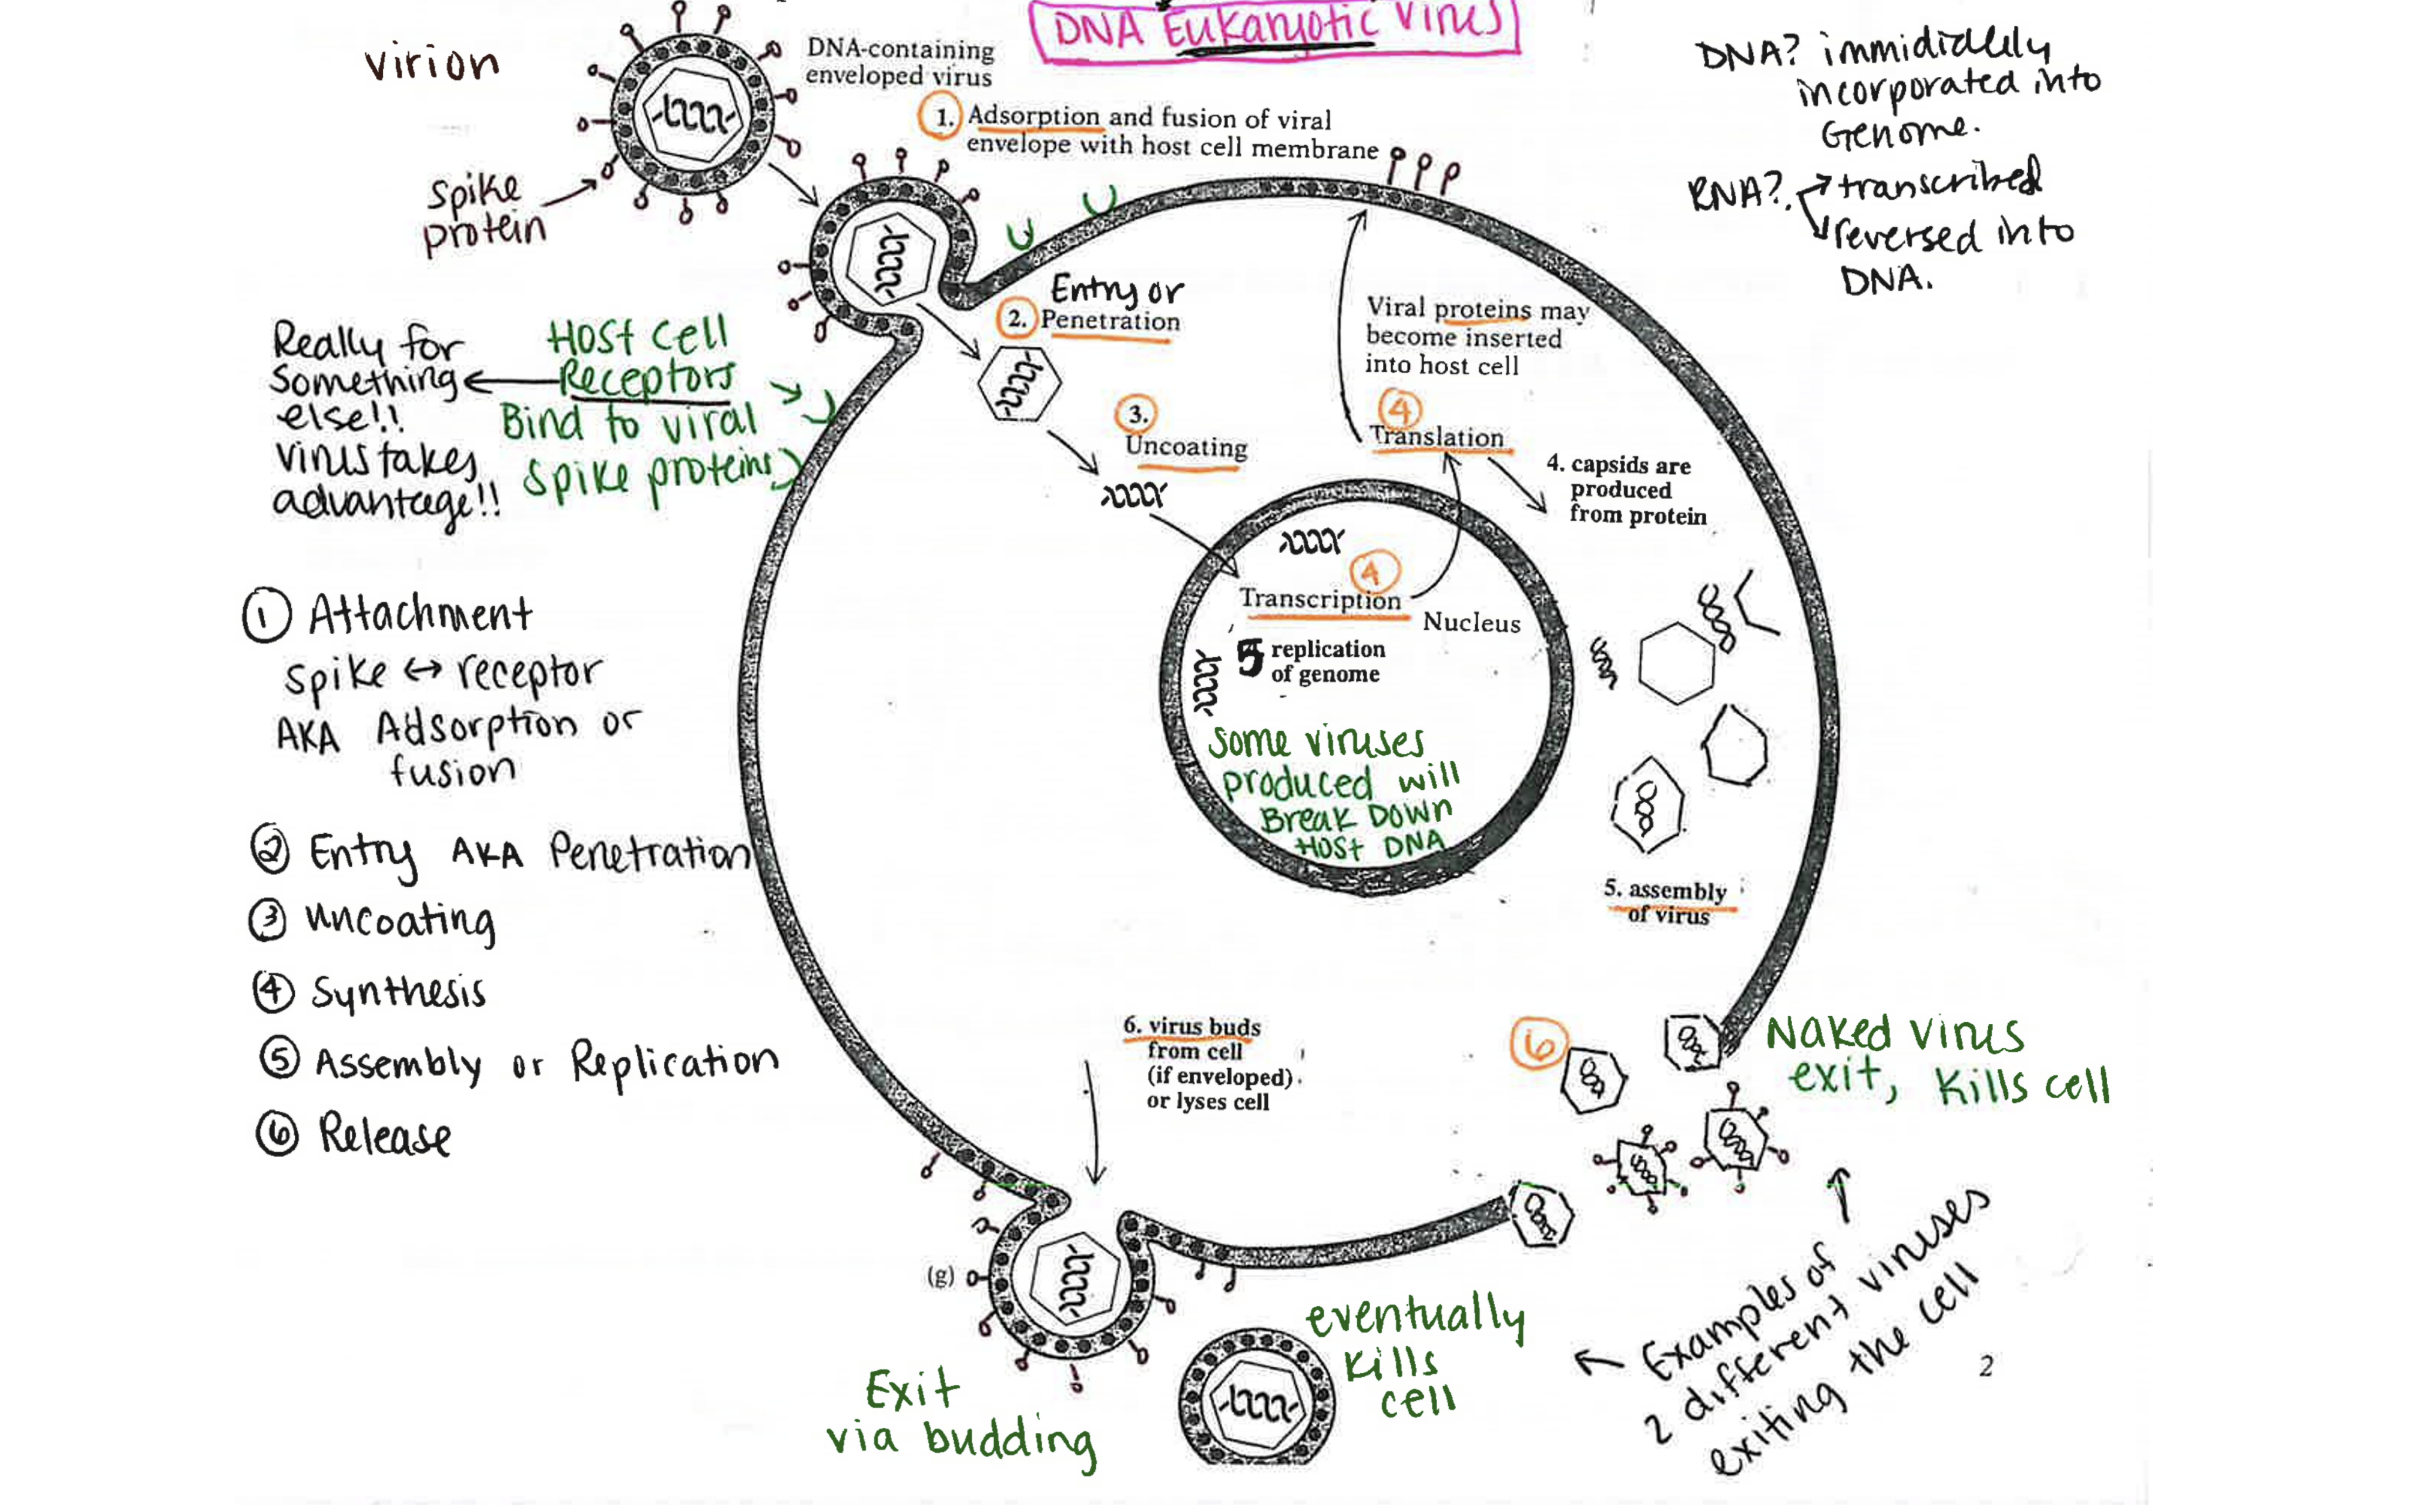 DNA Eukaryotic Virus
virion
DNA-containing
enveloped virus
spike
protein
1. Adsorption and fusion of viral
envelope with host cell membrane
DNA? immidiatly
incorporated into
Genome.
RNA? → transcribed
reversed into
DNA.
Really for
something
else!!
Virus takes
advantage!!
Host cell
Receptors
Bind to viral
spike proteins
Entry or
2. Penetration
3.
Uncoating
Viral proteins may
become inserted
into host cell
4
Translation
4. capsids are
produced
from protein
4
Transcription
Nucleus
5 replication
of genome
some viruses
produced will
Break Down
Host DNA
5. assembly
of virus
1 Attachment
spike ↔ receptor
AKA Adsorption or
fusion
2 Entry AKA Penetration
3 uncoating
4 Synthesis
5 Assembly or Replication
6 Release
6. virus buds
from cell
(if enveloped)
or lyses cell
6
Naked virus
exit, Kills cell
(g)
Exit
via budding
eventually
kills
cell
Examples of
2 different viruses
exiting the cell
2